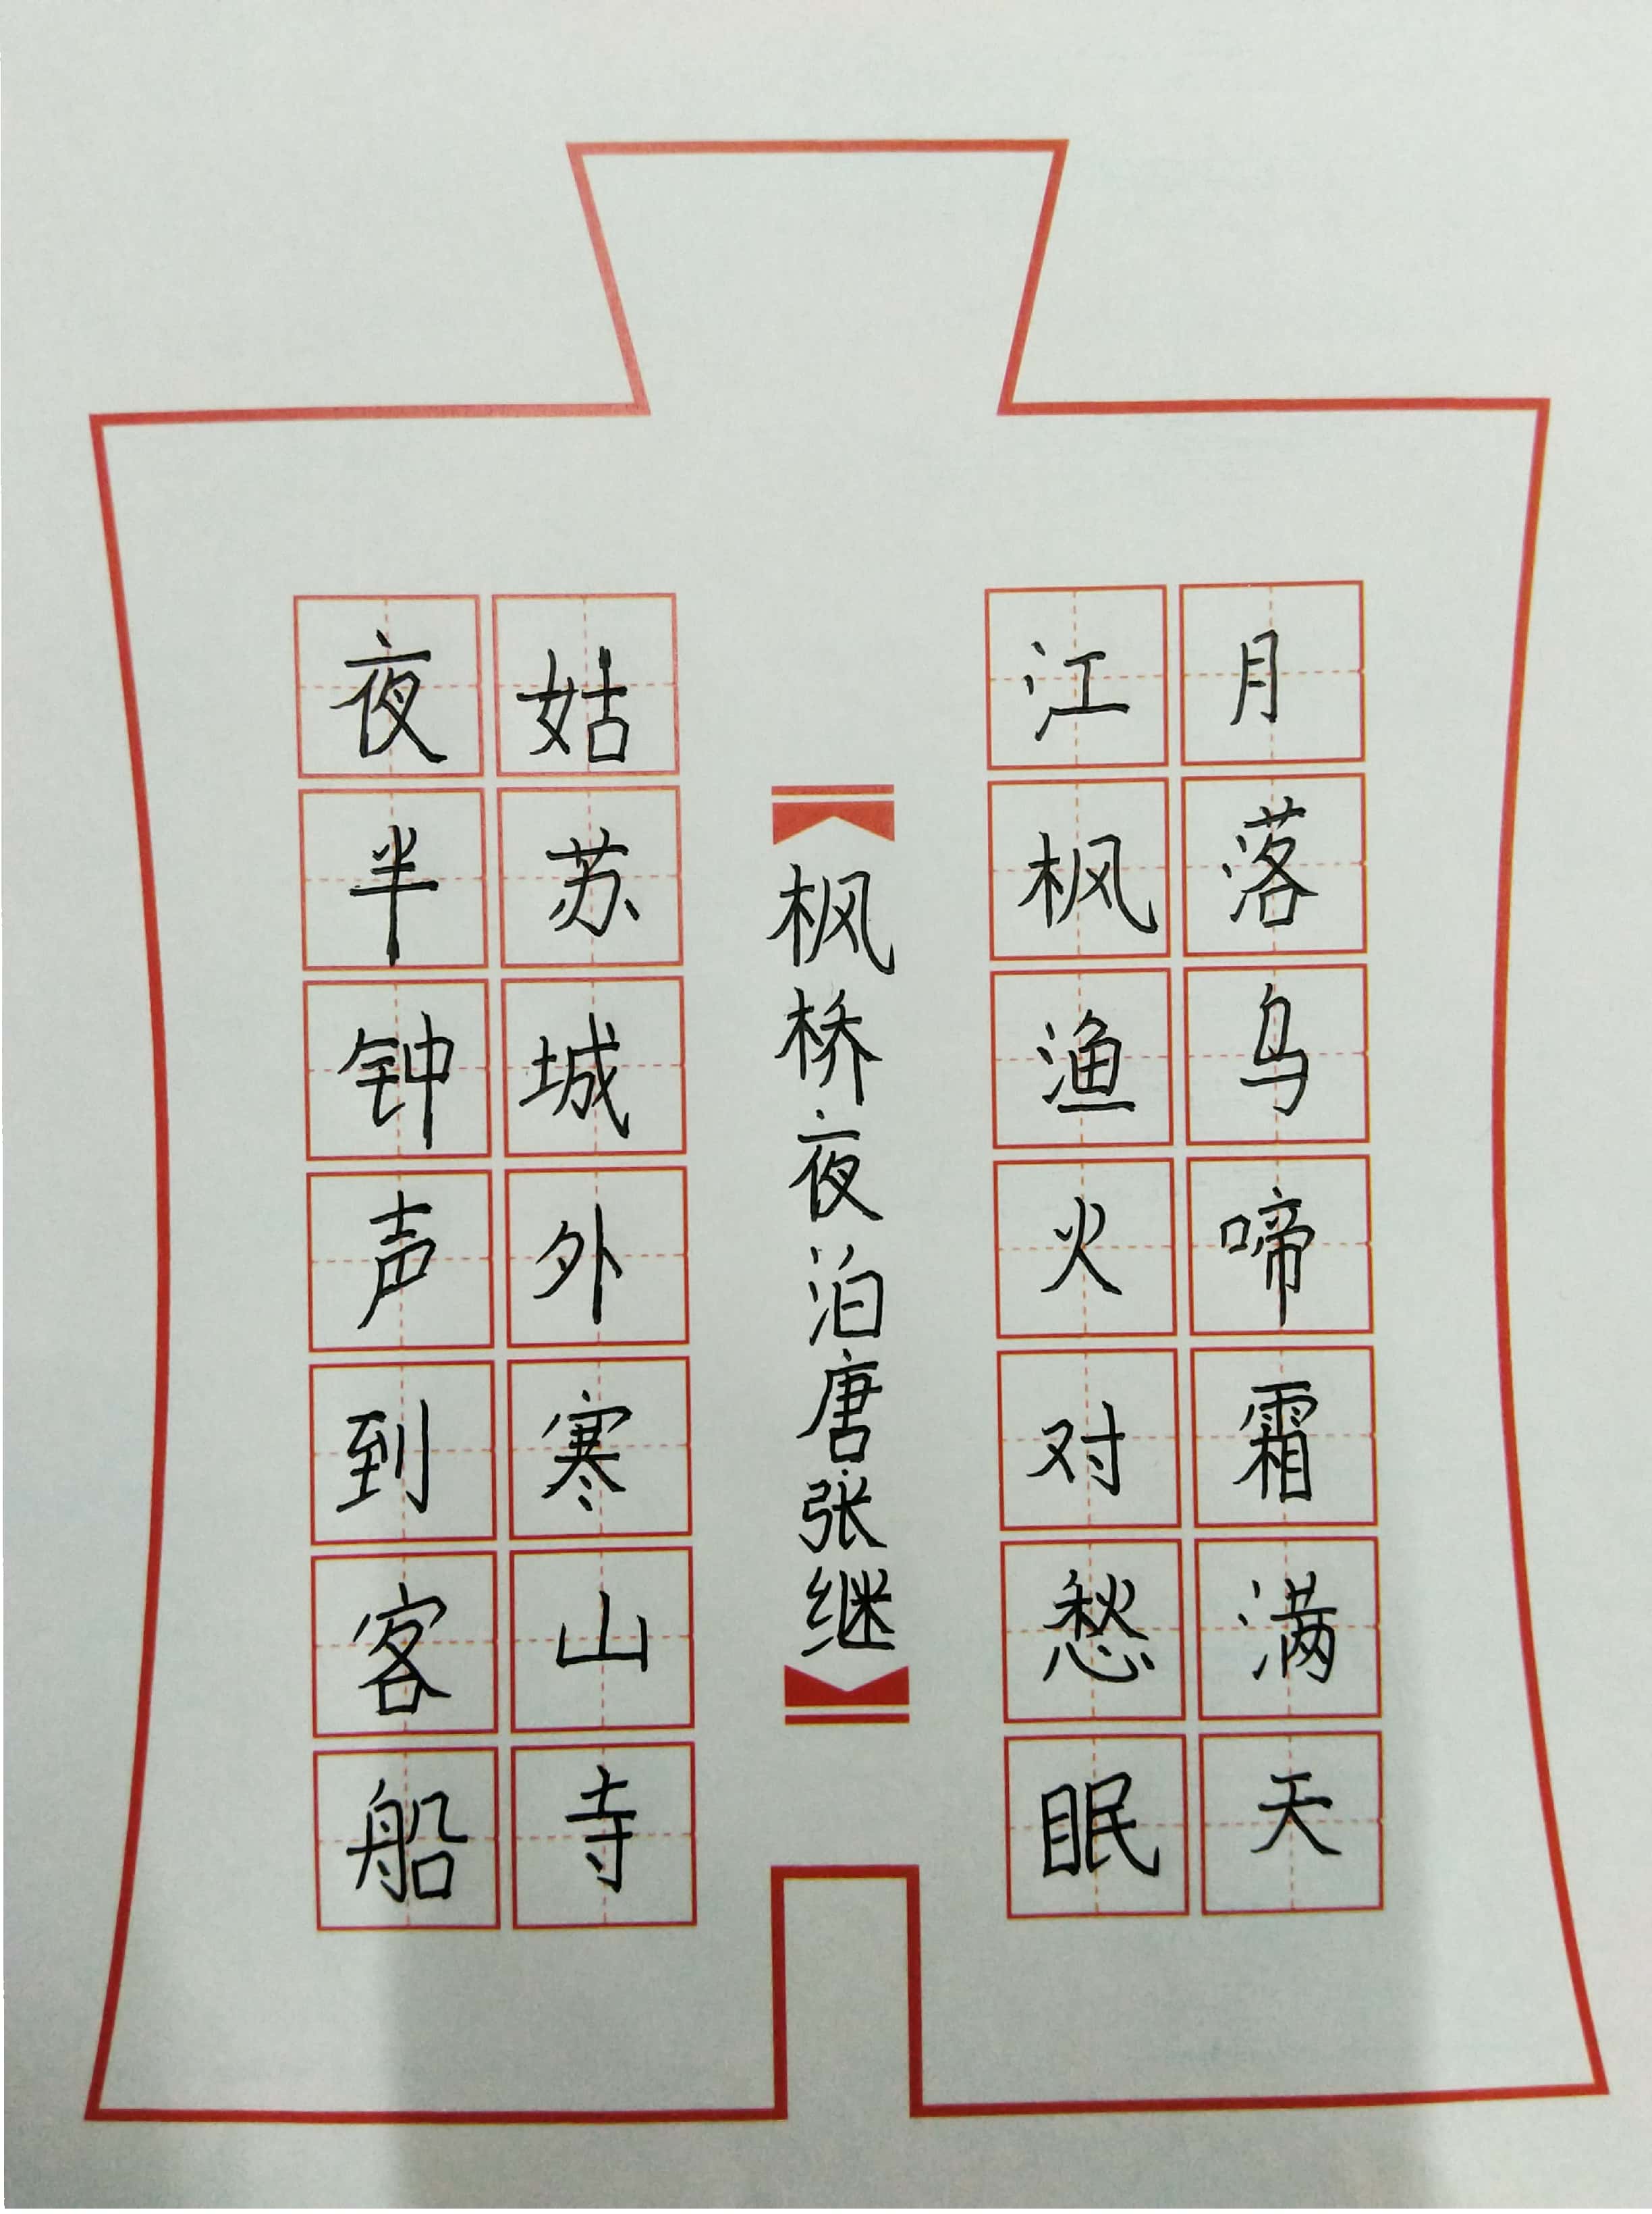 月落乌啼霜满天
江枫渔火对愁眠
枫桥夜泊唐张继
姑苏城外寒山寺
夜半钟声到客船